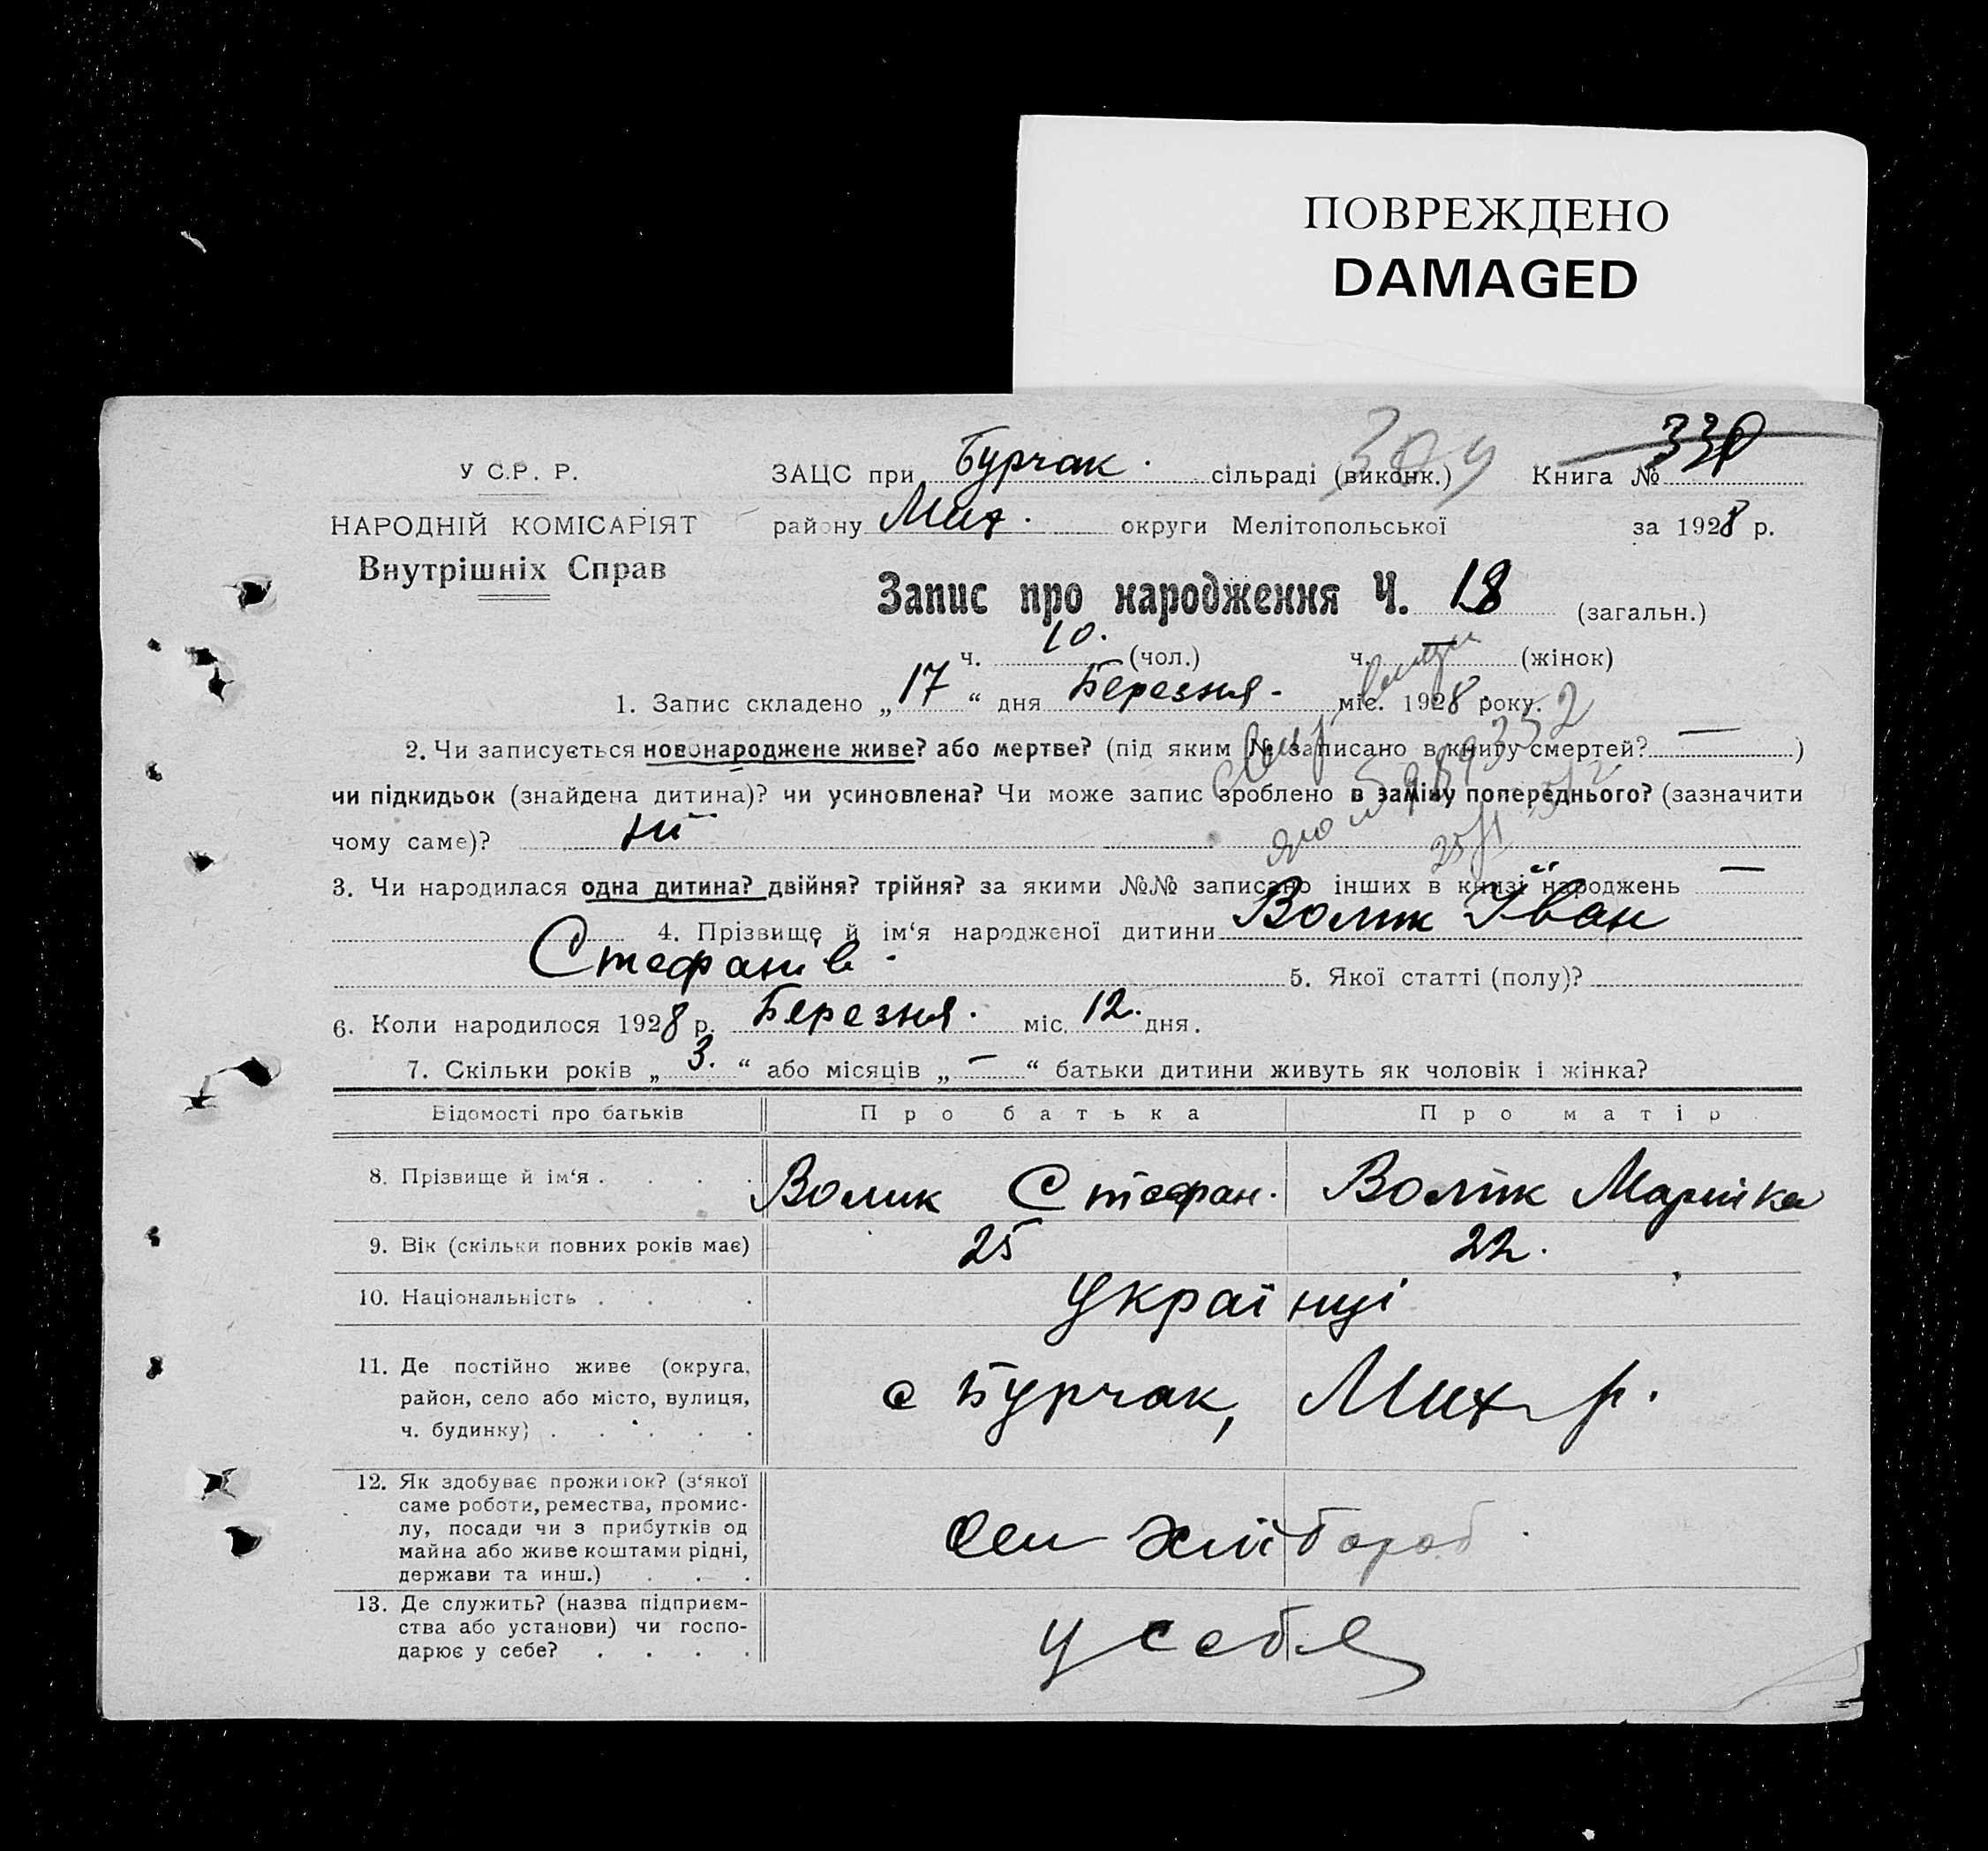 ПОВРЕЖДЕНО
DAMAGED
У С.Р. Р.
НАРОДНІЙ КОМІСАРІЯТ
Внутрішніх Справ
ЗАЦС при Бурчак. сільраді (виконк.) 309 Книга № 330
району Мих. округи Мелітопольської за 1928 р.
Запис про народження Ч. 18 (загальн.)
ч. 10. (чол.) ч. — (жінок)
1. Запис складено „17“ дня Березня - міс. 1928 року.
2. Чи записується новонароджене живе? або мертве? (під яким № записано в книгу смертей? — )
чи підкидьок (знайдена дитина)? чи усиновлена? Чи може запис зроблено в заміну попереднього? (зазначити
чому саме)? ні
3. Чи народилася одна дитина? двійня? трійня? за якими №№ записано інших в книзі народжень —
4. Прізвище й ім‘я народженої дитини Волик Іван
Стефанів. 5. Якої статті (полу)?
6. Коли народилося 1928 р. Березня. міс. 12. дня.
7. Скільки років „3.“ або місяців „—“ батьки дитини живуть як чоловік і жінка?
Відомості про батьків Про батька Про матір
8. Прізвище й ім‘я . . . . Волик Стефан. Волик Марійка
9. Вік (скільки повних років має) 25 22.
10. Національність . . . . Українці
11. Де постійно живе (округа,
район, село або місто, вулиця,
ч. будинку) . . . . . с Бурчак, Мих р.
12. Як здобуває прожиток? (з‘якої
саме роботи, ремества, промис-
лу, посади чи з прибутків од
майна або живе коштами рідні,
держави та инш.) . . . Сел хлібороб.
13. Де служить? (назва підприєм-
ства або установи) чи госпо-
дарює у себе? . . . . у себя